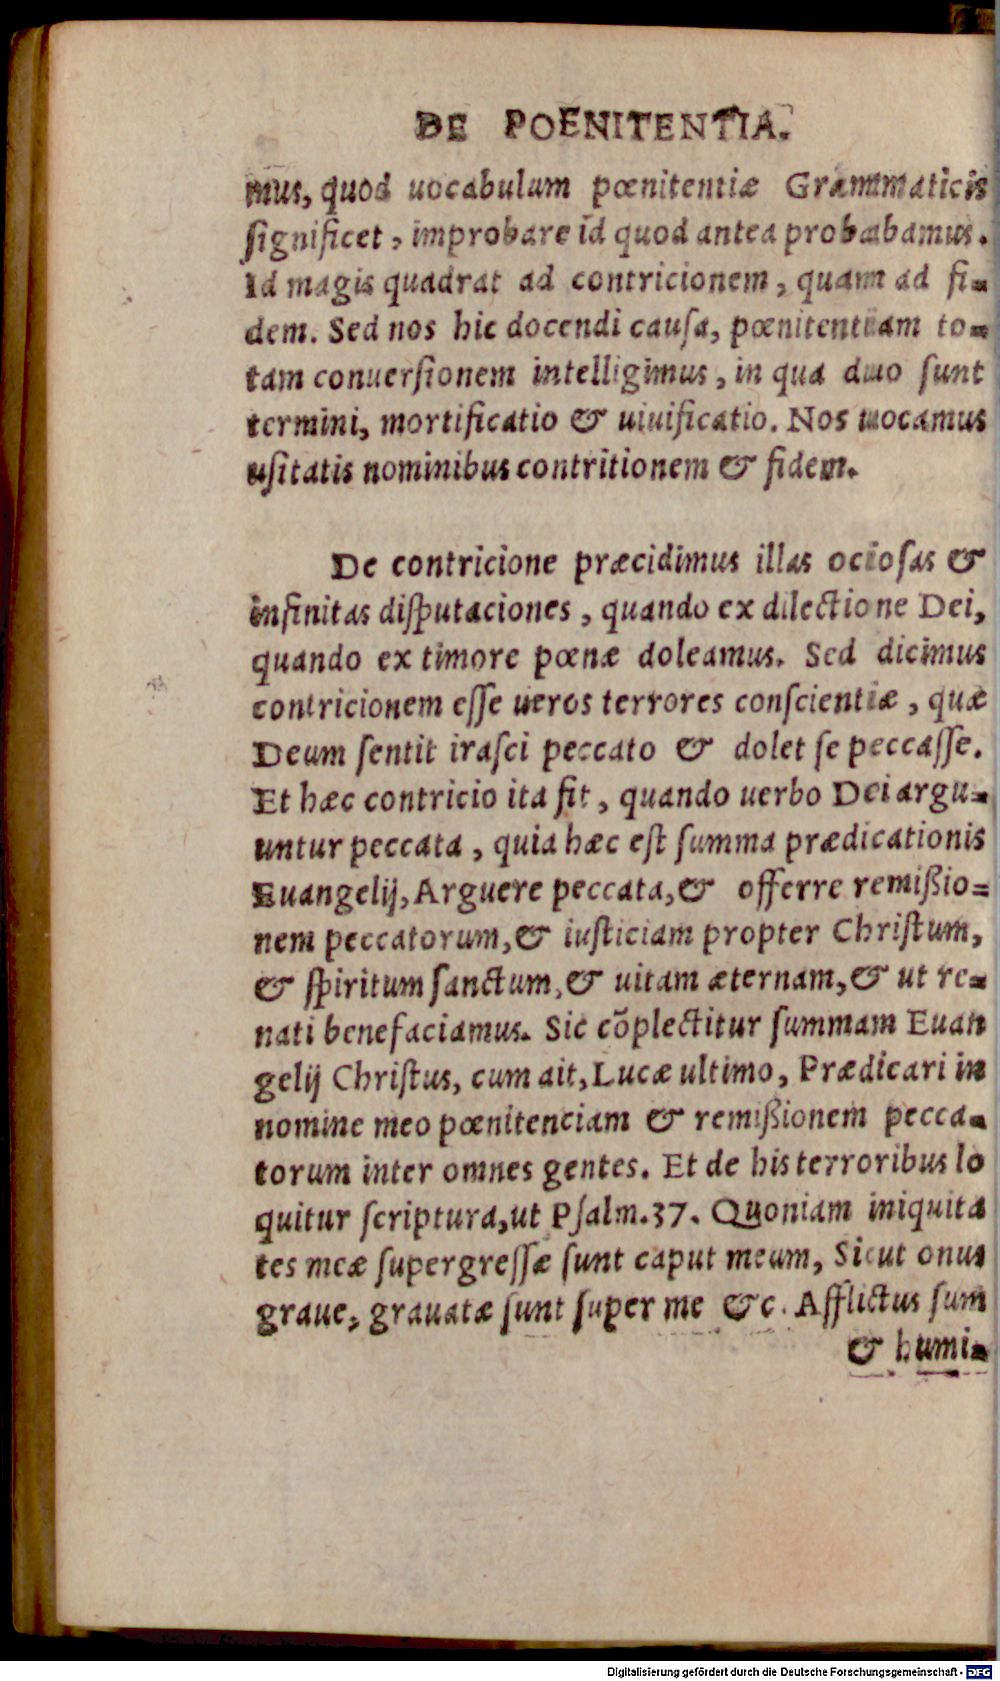 DE POENITENTIA.
mus, quod uocabulum pœnitentiæ Grammaticis
ſignificet, improbare id quod antea probabamus.
Id magis quadrat ad contricionem, quam ad fi-
dem. Sed nos hic docendi cauſa, pœnitentiam to-
tam conuerſionem intelligimus, in qua duo ſunt
termini, mortificatio & uiuificatio. Nos uocamus
uſitatis nominibus contritionem & fidem.
De contricione præcidimus illas ocioſas &
infinitas diſputaciones, quando ex dilectione Dei,
quando ex timore pœnæ doleamus. Sed dicimus
contricionem eſſe ueros terrores conſcientiæ, quæ
Deum ſentit iraſci peccato & dolet ſe peccaſſe.
Et hæc contricio ita fit, quando uerbo Dei argu-
untur peccata, quia hæc eſt ſumma prædicationis
Euangelij, Arguere peccata, & offerre remißio-
nem peccatorum, & iuſticiam propter Chriſtum,
& ſpiritum ſanctum, & uitam æternam, & ut re-
nati benefaciamus. Sic cõplectitur ſummam Euan
gelij Chriſtus, cum ait, Lucæ ultimo, Prædicari in
nomine meo pœnitenciam & remißionem pecca-
torum inter omnes gentes. Et de his terroribus lo
quitur ſcriptura, ut Pſalm. 37. Quoniam iniquita
tes meæ ſupergreſſæ ſunt caput meum, Sicut onus
graue, grauatæ ſunt ſuper me &c. Afflictus ſum
& humi-
Digitalisierung gefördert durch die Deutsche Forschungsgemeinschaft - DFG